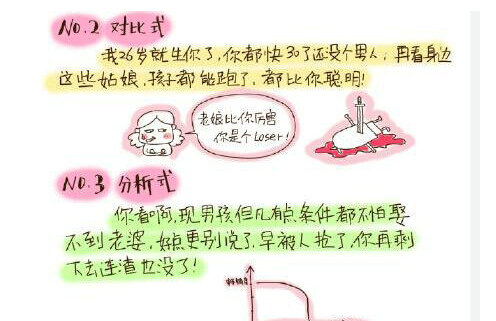 NO.2 对比式
我26岁就生你了，你都快30了还没个男人；再看身边
这些姑娘，孩子都能跑了，都比你聪明！
老娘比你厉害
你是个Loser！
NO.3 分析式
你看啊，现男孩但凡有点条件都不怕娶
不到老婆，好点更别说了，早被人抢了，你再剩
下去连渣也没了！